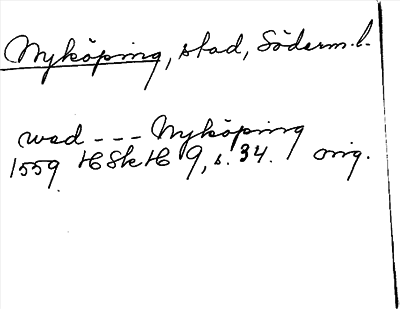 Nyköping, stad, Söderm.l.
wed --- Nyköping
1559 HSkH 9, s. 34. orig.